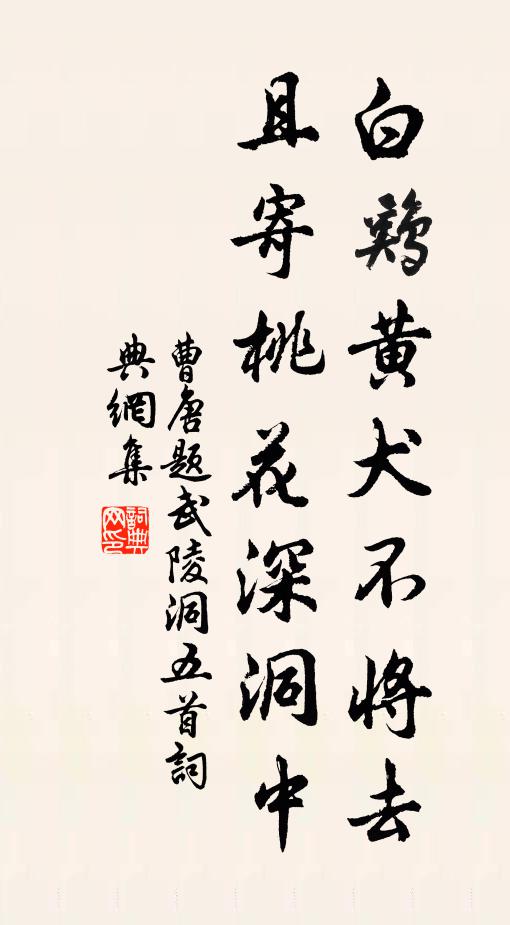 白鷄黄犬不將去
且寄桃花深洞中
曹唐題武陵洞五首詞
典網集
詞典网印